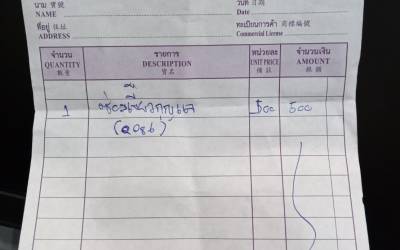 นาม 寶號
NAME
วันที่ 日期
Date
ที่อยู่ 住址
ADDRESS
ทะเบียนการค้า 商標編號
Commercial License
จำนวน รายการ หน่วยละ จำนวนเงิน
QUANTITY DESCRIPTION UNIT PRICE AMOUNT
數量 貨名 價註 銀碼
1 500 500